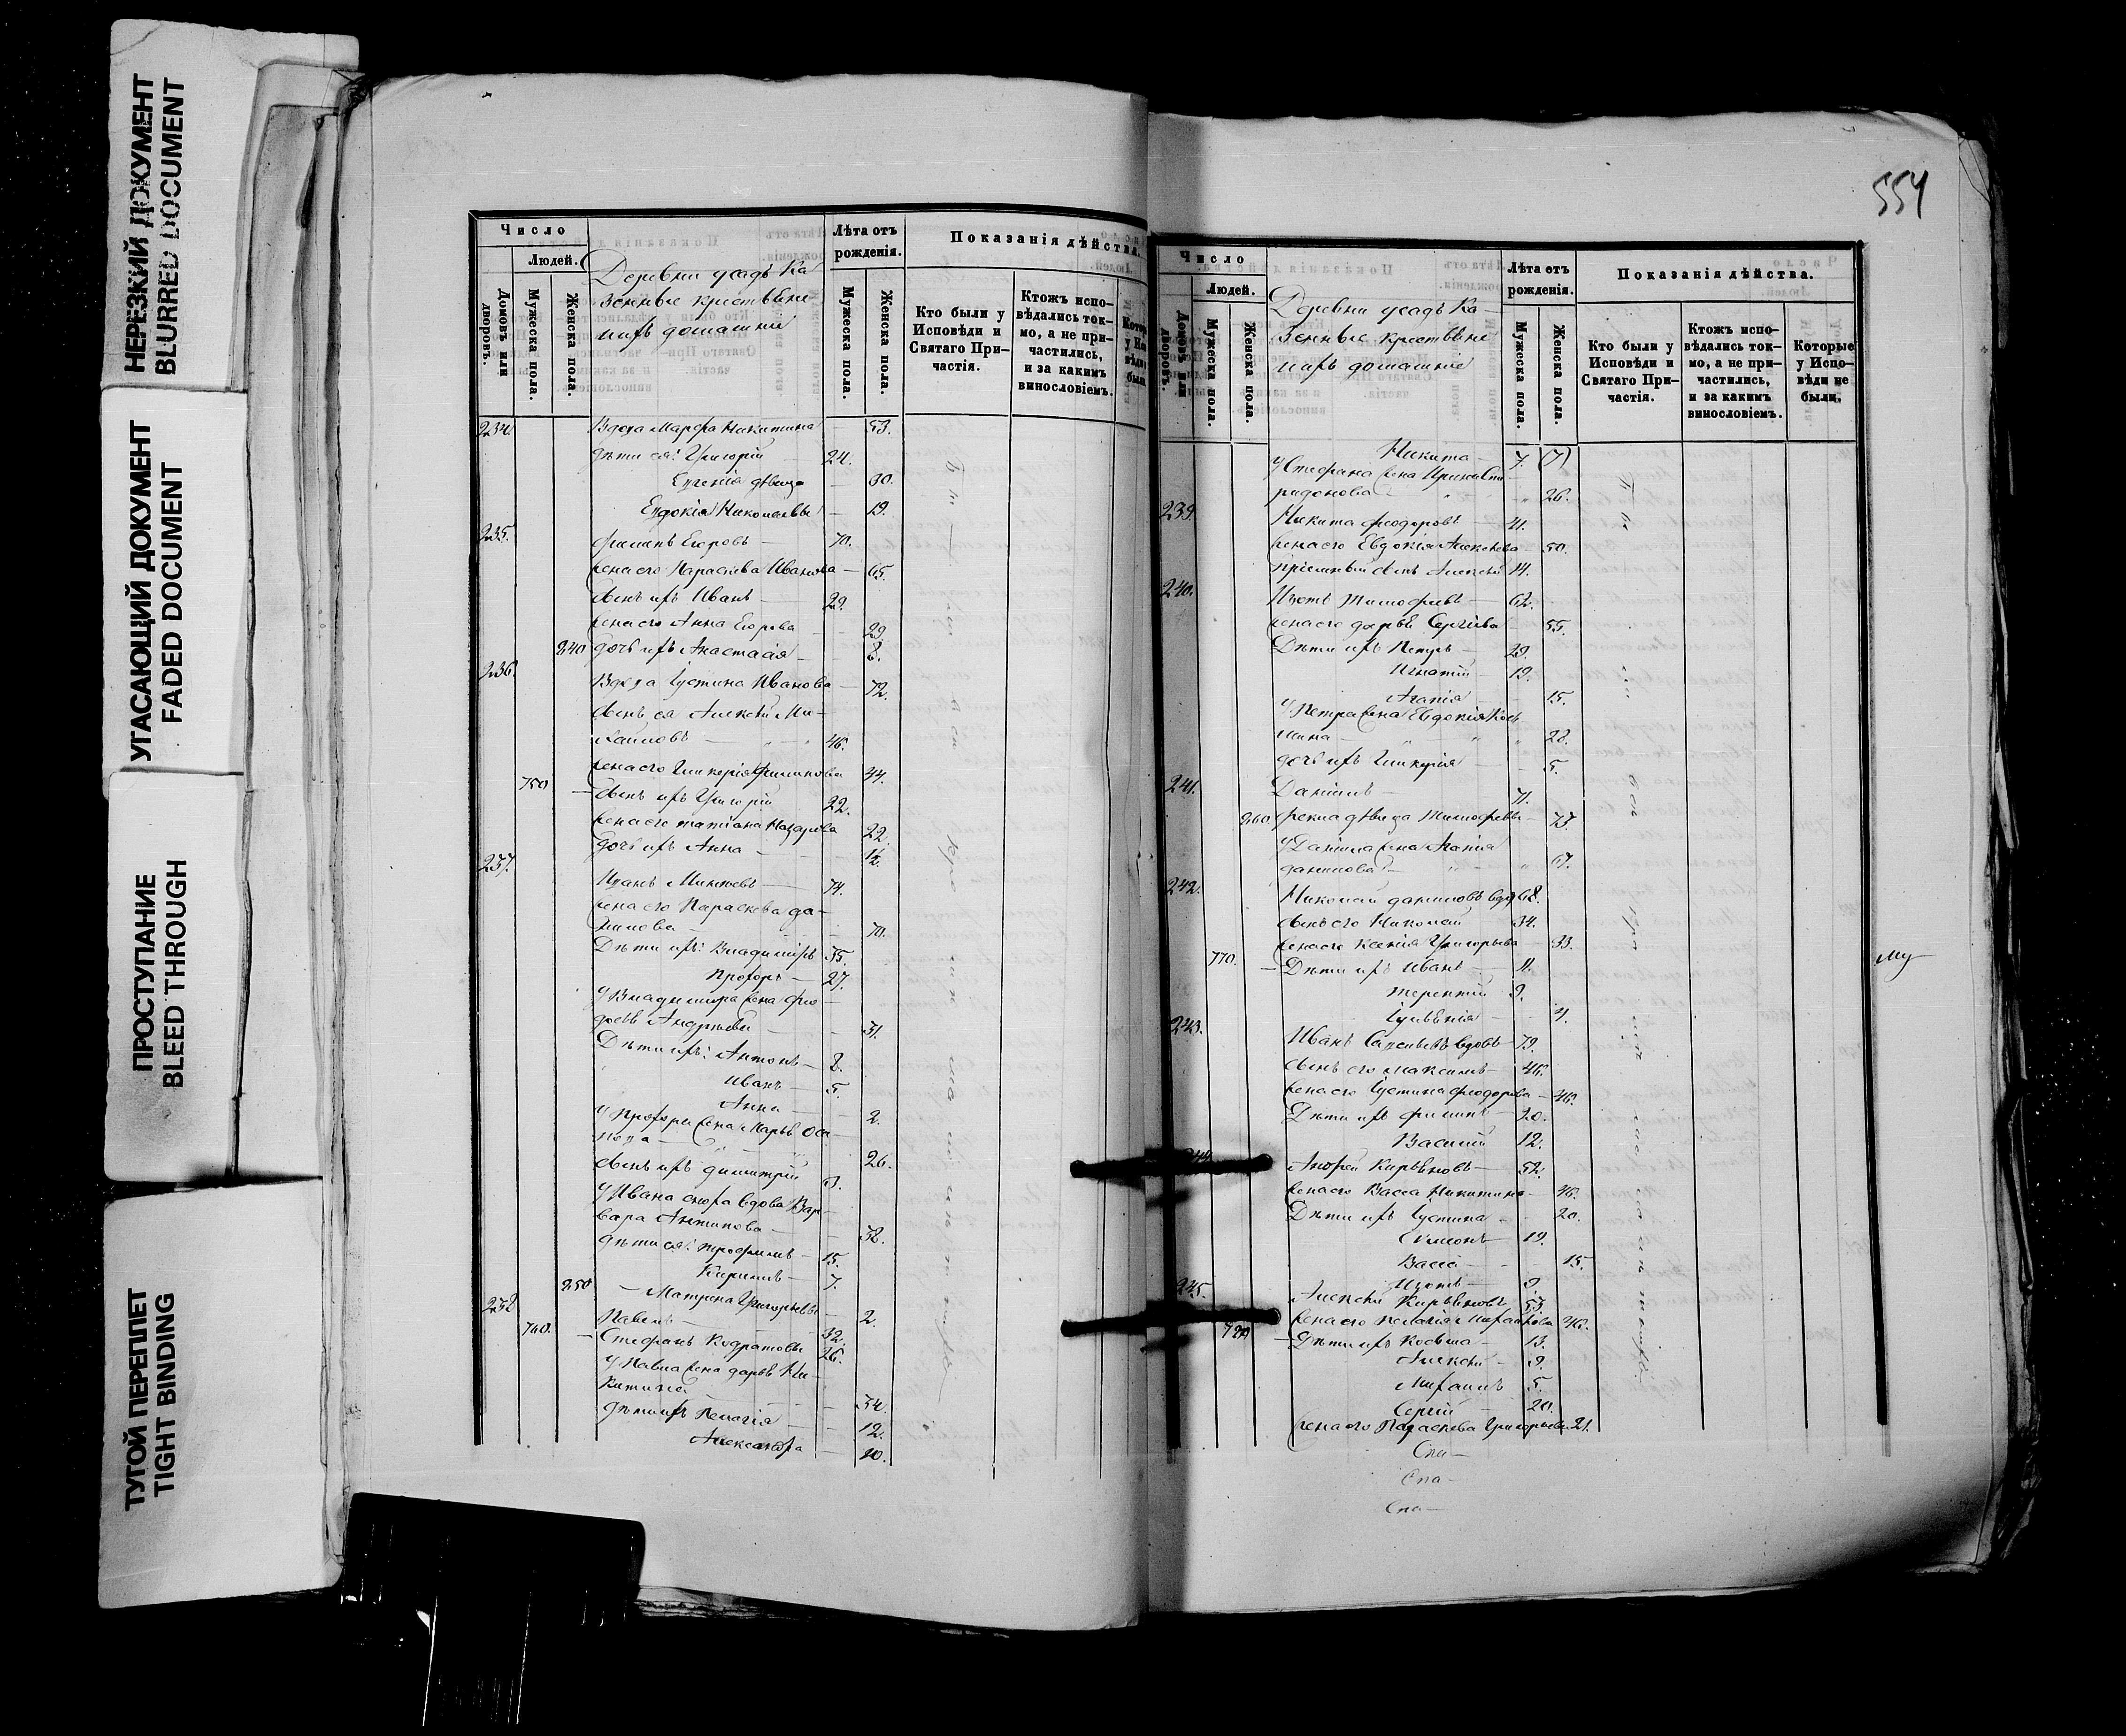 НЕРЕЗКИЙ ДОКУМЕНТ
BLURRED DOCUMENT
УГАСАЮЩИЙ ДОКУМЕНТ
FADED DOCUMENT
ПРОСТУПАНИЕ
BLEED THROUGH
ТУГОЙ ПЕРЕПЛЕТ
TIGHT BINDING
Число
Людей.
Домовъ или дворовъ.
Мужеска пола.
Женска пола.
Деревни усадъ Ка
зенные крестьяне
ихъ домашніе
Лѣта отъ рожденія.
Мужеска пола.
Женска пола.
Показанія дѣйства.
Кто были у Исповѣди и Святаго Причастія.
Ктожъ исповѣдались токмо, а не причастились, и за какимъ винословіемъ.
234. Вдова Марфа Никитина 53.
дѣти ея: Григорій 24.
Евгенія дѣвица 30.
Евдокія Николаевы 19.
235. Филипъ Егоровъ 70.
жена его Параскева Иванова 65.
сынъ ихъ Иванъ 29.
жена его Анна Егорова 29.
240 дочь ихъ Анастасія 8.
236. Вдова Іустина Иванова 72.
сынъ ея Алексѣй Ми-
хаиловъ 46.
жена его Гликерія Филипова 44.
750 сынъ ихъ Григорій 22.
жена его Татіана Назарова 22.
дочь ихъ Анна 1½
237. Иванъ Миняевъ 74.
жена его Параскева Да-
нилова 70.
Дѣти ихъ: Владиміръ 35.
Прохоръ 27.
У Владиміра жена Фео-
досья Андреева 31.
Дѣти ихъ: Антонъ 8.
Иванъ 5.
Анна 2.
У Прохора жена Марья Оси-
пова 26.
сынъ ихъ Димитрій 3.
У Ивана сноха вдова Вар-
вара Антипова 38.
дѣти ея: Трофимъ 15.
Кирилъ 7.
250 Матрена Григорьевы 2.
238 Павелъ 32.
760. Стефанъ Кодратовы 26.
У Павла жена Дарья Ни-
китина 34.
дѣти ихъ Пелагія 12.
Александра 10.
554
Число
Людей.
Домовъ или дворовъ.
Мужеска пола.
Женска пола.
Деревни усадъ Ка-
зенные крестьяне
ихъ домашніе
Лѣта отъ рожденія.
Мужеска пола.
Женска пола.
Показанія дѣйства.
Кто были у Исповѣди и Святаго Причастія.
Ктожъ исповѣдались токмо, а не причастились, и за какимъ винословіемъ.
Которые у Исповѣди не были.
Никита 7. (7)
У Стефана жена Ирина Спи-
ридонова 26.
239. Никита Феодоровъ 41.
жена его Евдокія Алексѣева 50.
пріемный сынъ Алексѣй 14.
240. Изотъ Тимофеевъ 62.
жена его Дарья Сергѣева 55.
Дѣти ихъ Петръ 29.
Игнатій 19.
Агапія 15.
У Петра жена Евдокія Кось-
мина 28.
дочь ихъ Гликерія 5.
241. Даніилъ 71.
260. Фекла дѣвица Тимофеевы 73.
У Даніила жена Агапія
Данилова 67.
242. Николай Даниловъ вдов 68.
сынъ его Николай 34.
жена его Ксенія Григорьева 33.
770. Дѣти ихъ Иванъ 11.
Терентій 9.
Іуліанія 4.
243. Иванъ Савельевъ вдовъ 79.
сынъ его Максимъ 46.
жена его Іустина Феодорова 46.
Дѣти ихъ Филипъ 20.
Василій 12.
244 Андрей Кирьяновъ 52.
жена его Васса Никитина 46.
Дѣти ихъ Іустина 20.
Симонъ 19.
Васса 15.
Изотъ 9.
245. Алексѣй Кирьяновъ 53.
жена его Пелагія 46.
780 Дѣти ихъ Косьма 13.
Алексѣй 9.
Михаилъ 5.
Сергій 20.
жена его Параскева Григорьева 21.
Спа-
Спа-
Спа-